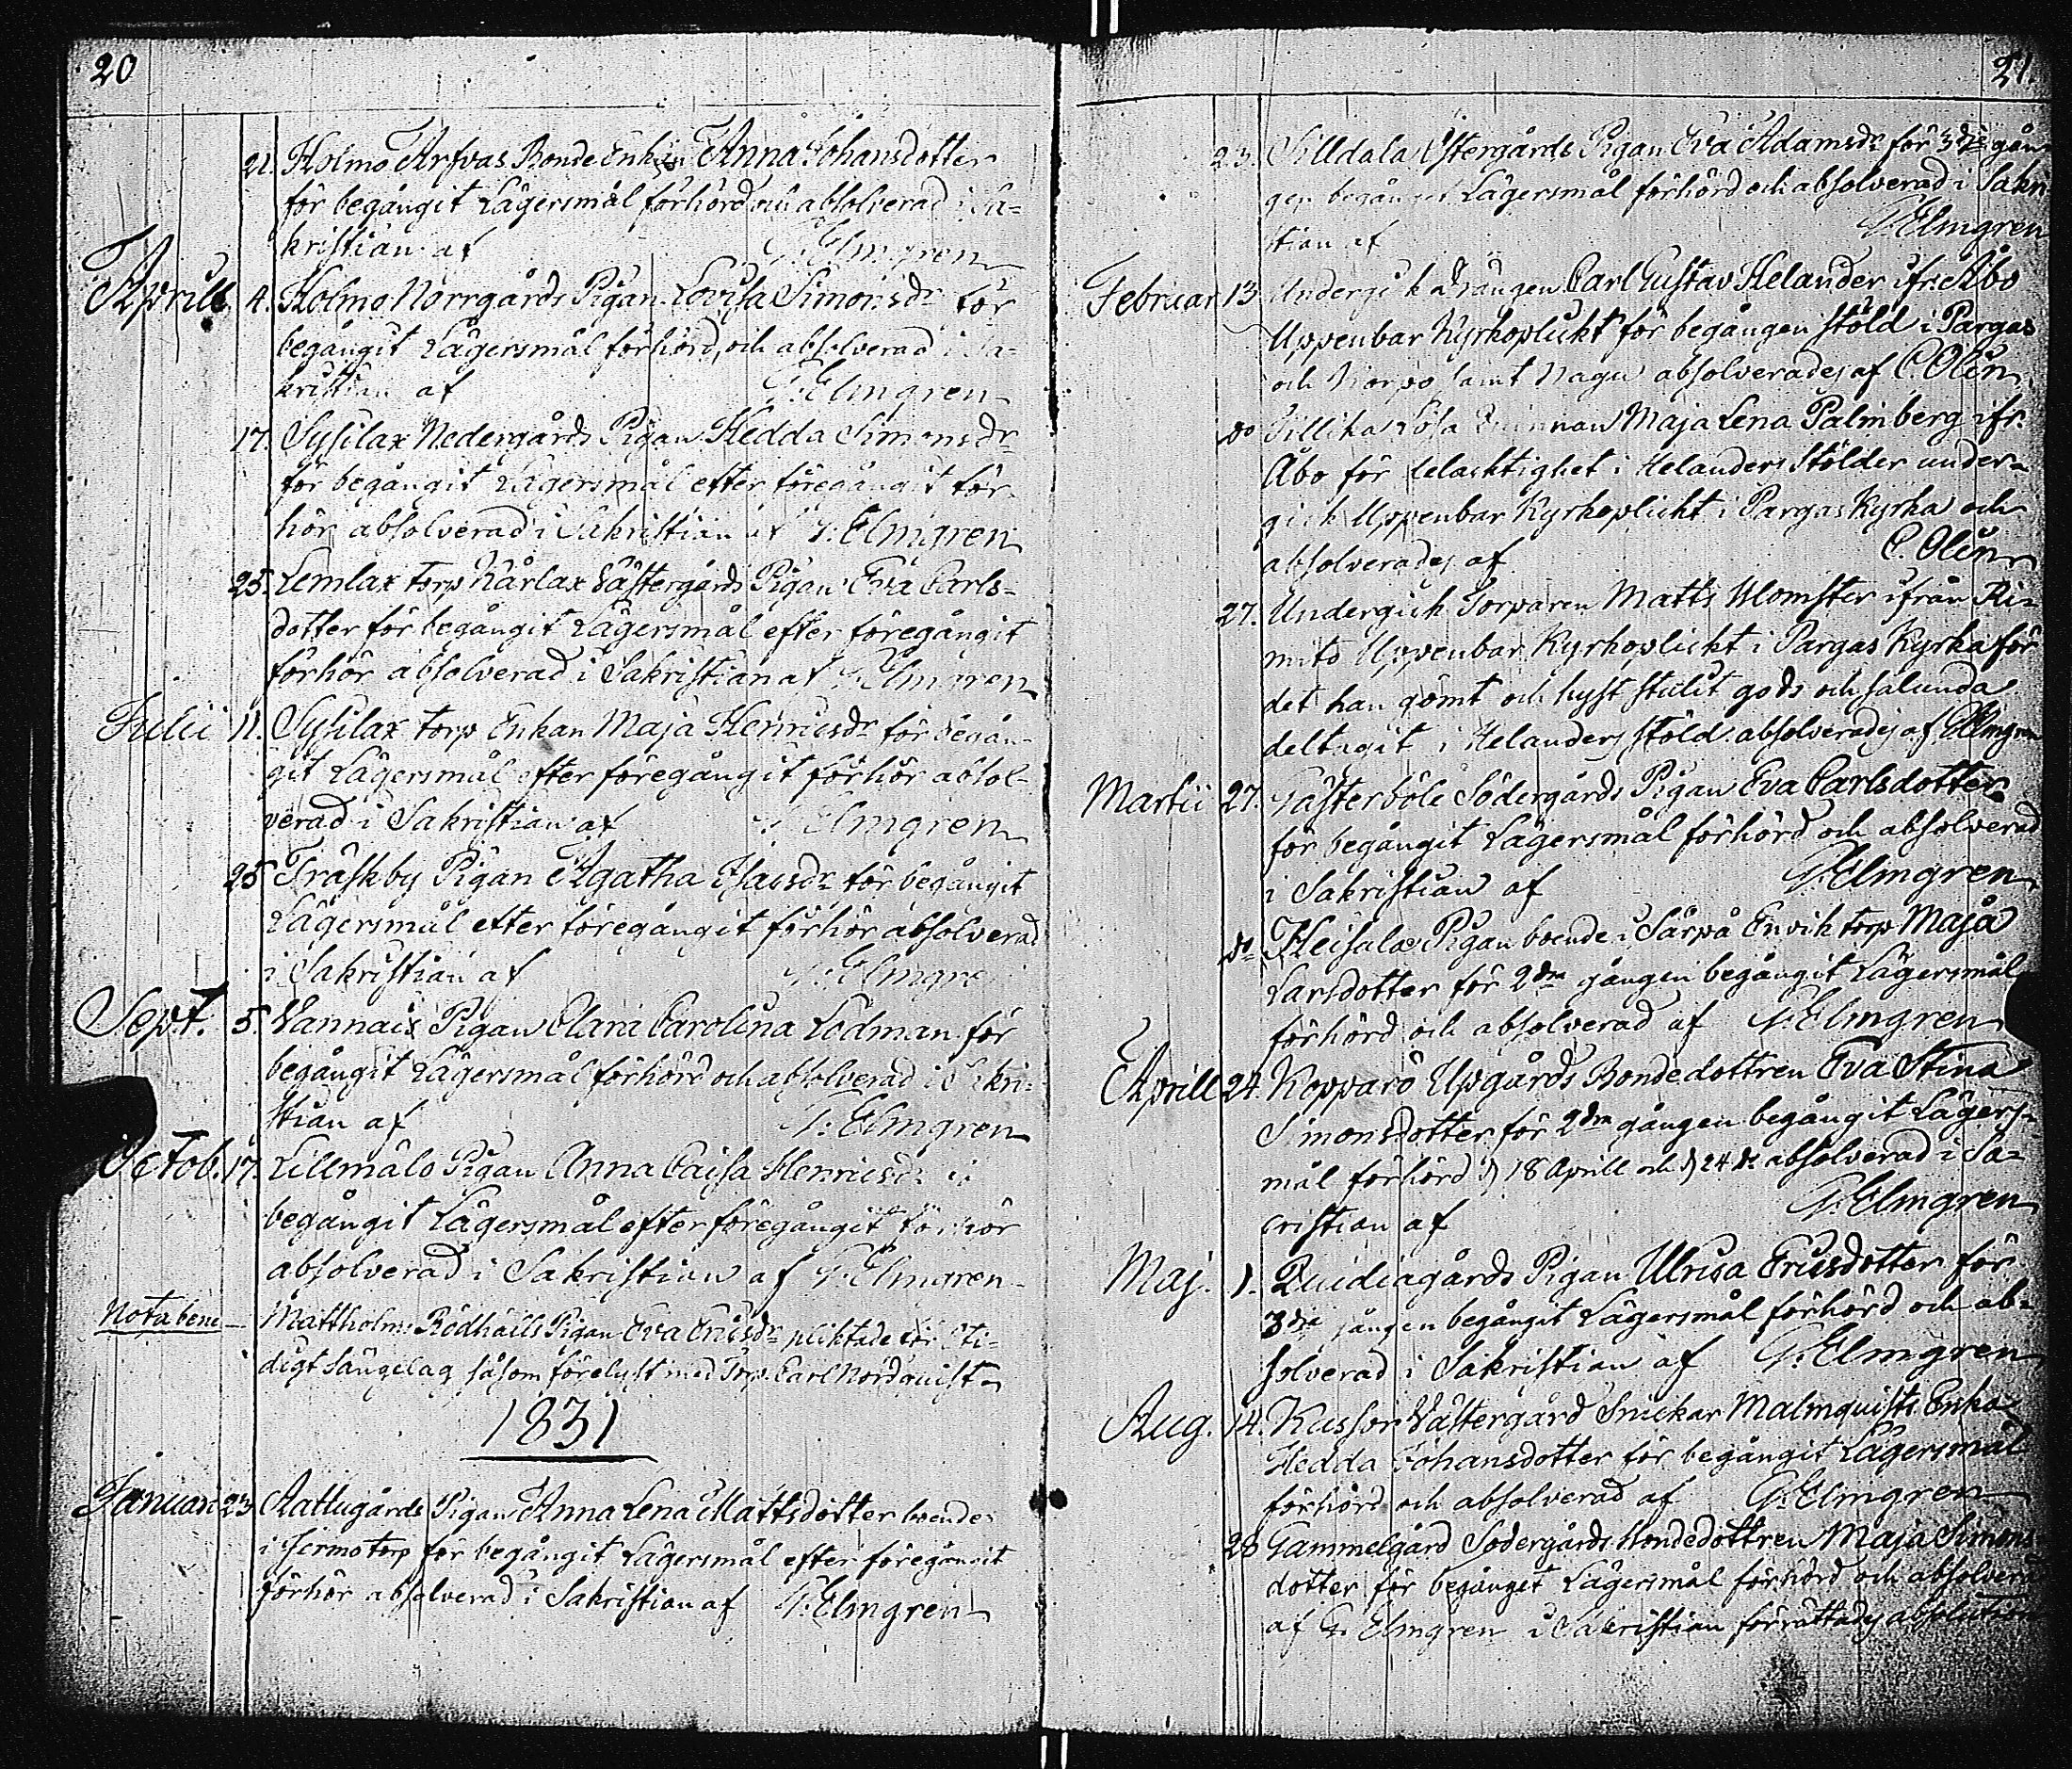 20
21. Holmo Arfvas Bonde Enkan Anna Johansdotter
för begångit Lägersmål förhörd och absolverad i Sa=
kristian af G. Elmgren
Aprill 4. Holmo Norrgårds Pigan Lovisa Simonsdr för
begångit Lägersmål förhörd, och absolverad i Sa=
kristian af G. Elmgren
17. Sysilax Nedergårds Pigan Hedda Simonsdr
för begångit Lägersmål efter föregångit för
hör absolverad i Sakristian af G. Elmgren
25. Lemlax torp Kårlax Västergårds Pigan Eva Carls=
dotter för begångit Lägersmål efter föregångit
förhör absolverad i Sakristian af G. Elmgren
Julii 11. Sysilax torp Enkan Maja Henricsdr för begån=
git Lägersmål efter föregångit förhör absol=
verad i Sakristian af G. Elmgren
25 Träskby Pigan Agatha Isacsdr för begångit
Lägersmål efter föregångit förhör absolverad
i Sakristian af G. Elmgren
Sept. 5. Vannais Pigan Clara Carolina Lodman för
begångit Lägersmål förhörd och absolverad i Sakri=
stian af G. Elmgren
Octob. 17. Lillmälö Pigan Anna Caisa Henricsdr
begångit Lägersmål efter föregångit förhör
absolverad i Sakristian af G. Elmgren
Nota bene — Mattholms Rödhälls Pigan Eva Ericsdr pliktade för Oti=
digt Sängelag såsom förelyst med Torp. Carl Nordquist
1831
Januari 23 Aatlugårds Pigan Anna Lena Mattsdotter boende
i Jermo torp för begångit Lägersmål efter föregångit
förhör absolverad i Sakristian af G. Elmgren
21.
23. Silldala Östergårds Pigan Eva Adamsdr för 3die gån
gen begångit Lägersmål förhörd och absolverad i Sakri
stian af G. Elmgren
Februar 13 Undergick Drängen Carl Gustav Helander ifr. Åbo
Uppenbar Kyrkoplickt för begången stöld i Pargas
och Korpo samt Nagu absolverades af C Olin
do Lösa Qvinnan Maja Lena Palmberg ifr.
Åbo för delacktighet i Helanders Stölder under=
gick Uppenbar Kyrkoplickt i Pargas Kyrka och
absolverades af C. Olin
27. Undergick Torparen Matts Blomster ifrån Ri=
mito Uppenbar Kyrkoplickt i Pargas Kyrka för
det han gömt och hyst stulit gods och sålunda
deltagit i Helanders Stöld absolverades af G Elmgren
Martii 27. Gästerböle Södergårds Pigan Eva Carlsdotter
för begångit Lägersmål förhörd och absolverad
i Sakristian af G. Elmgren
do Heisala Pigan boende i Särpå Envik torp Maja
Carlsdotter för 2dra gången begångit Lägersmål
förhörd och absolverad af G. Elmgren
Aprill 24. Kopparö Upgårds Bondedottren Eva Stina
Simonsdotter för 2dra gången begångit Lägers=
mål förhörd d 18 Aprill och d 24 do absolverad i Sa=
cristian af G. Elmgren
Maj. 1. Quidiagårds Pigan Ulrica Ericsdotter för
3die gången begångit Lägersmål förhörd och ab=
solverad i Sakristian af G. Elmgren
Aug. 14. Kussor Västergård Snickar Malmquists Enka
Hedda Johansdotter för begångit Lägersmål
förhörd och absolverad af G. Elmgren
28 Gammelgård Södergårds Bondedottren Maja Simons
dotter för begånget Lägersmål förhörd och absolverad
af G. Elmgren i Sakristian förrättades absolution